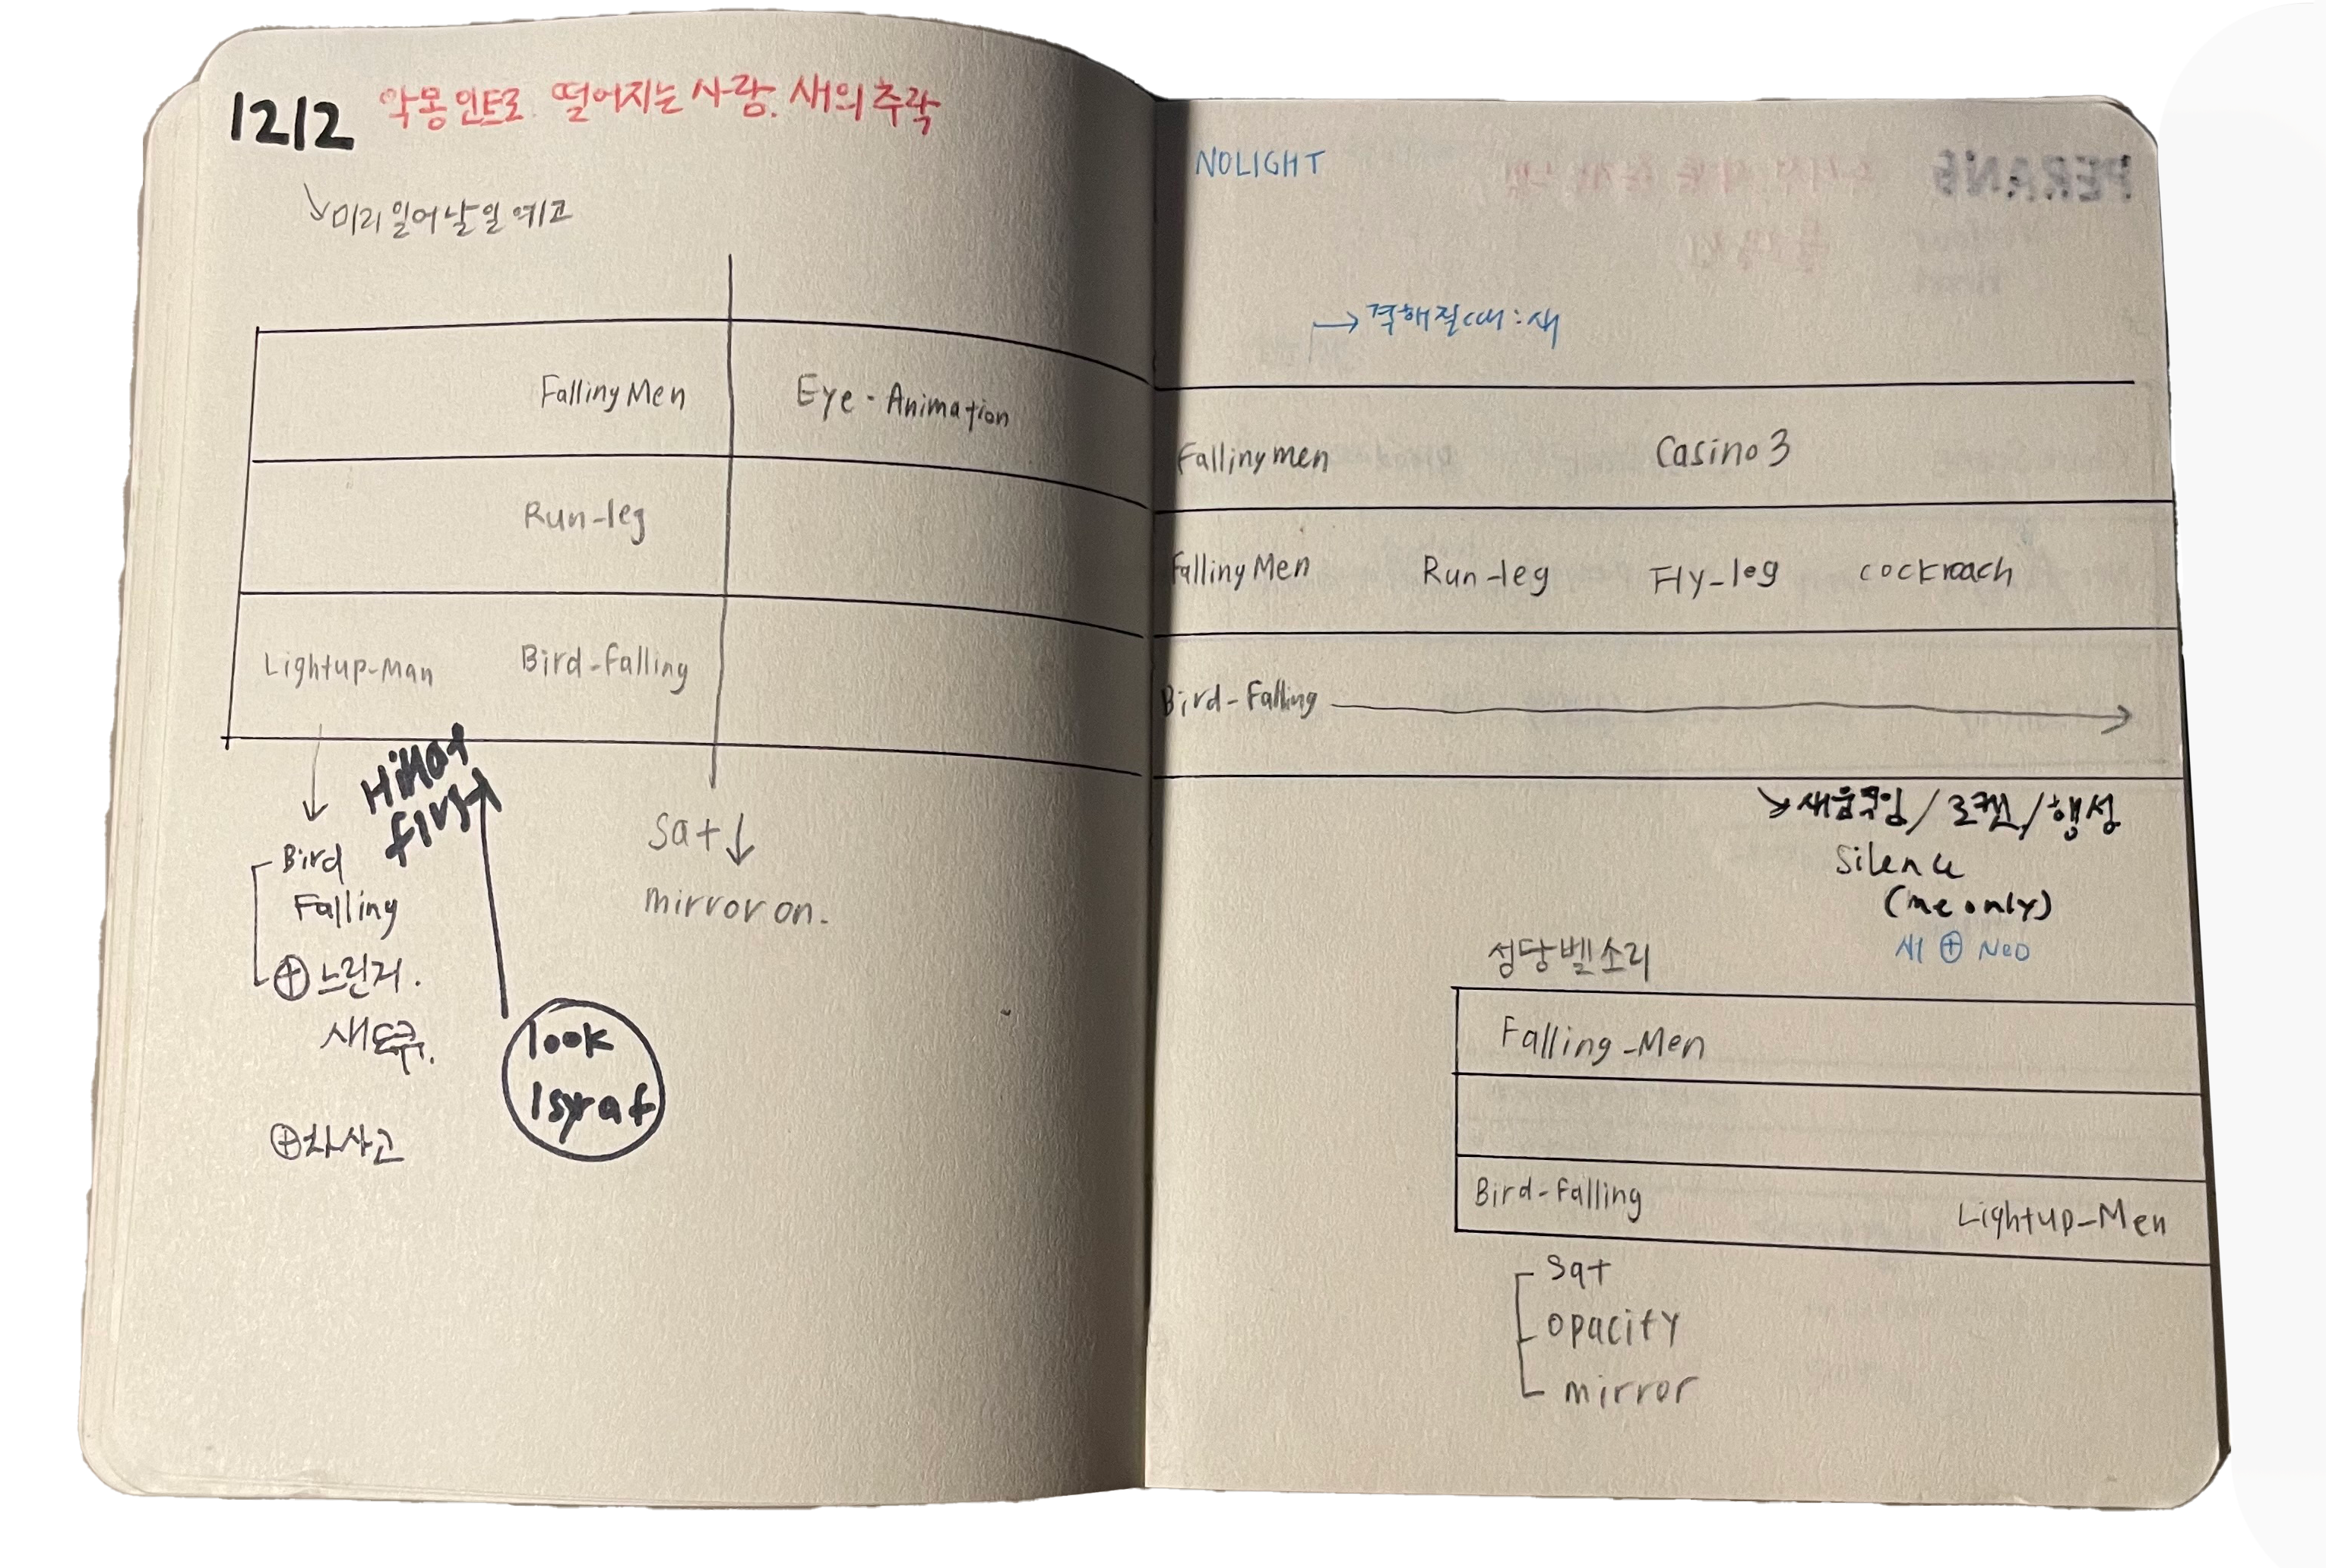 1212 악몽 인트로. 떨어지는 사람. 새의 추락
미리 일어날 일 예고
Falling Men Eye - Animation
Run-leg
Lightup-Man Bird-Falling
HiHat
first
Bird
Falling
⊕ 느린거.
새
⊕ 차사고
look
Isyraf
Sat↓
mirror on.
NOLIGHT
→ 격해질때 : 새
Falling men Casino 3
Falling Men Run-leg Fly-leg cockroach
Bird-Falling
새움직임 / 로켓 / 행성
Silence
(me only)
새 ⊕ NeD
성당벨소리
Falling-Men
Bird-Falling Lightup-Men
Sat
opacity
mirror